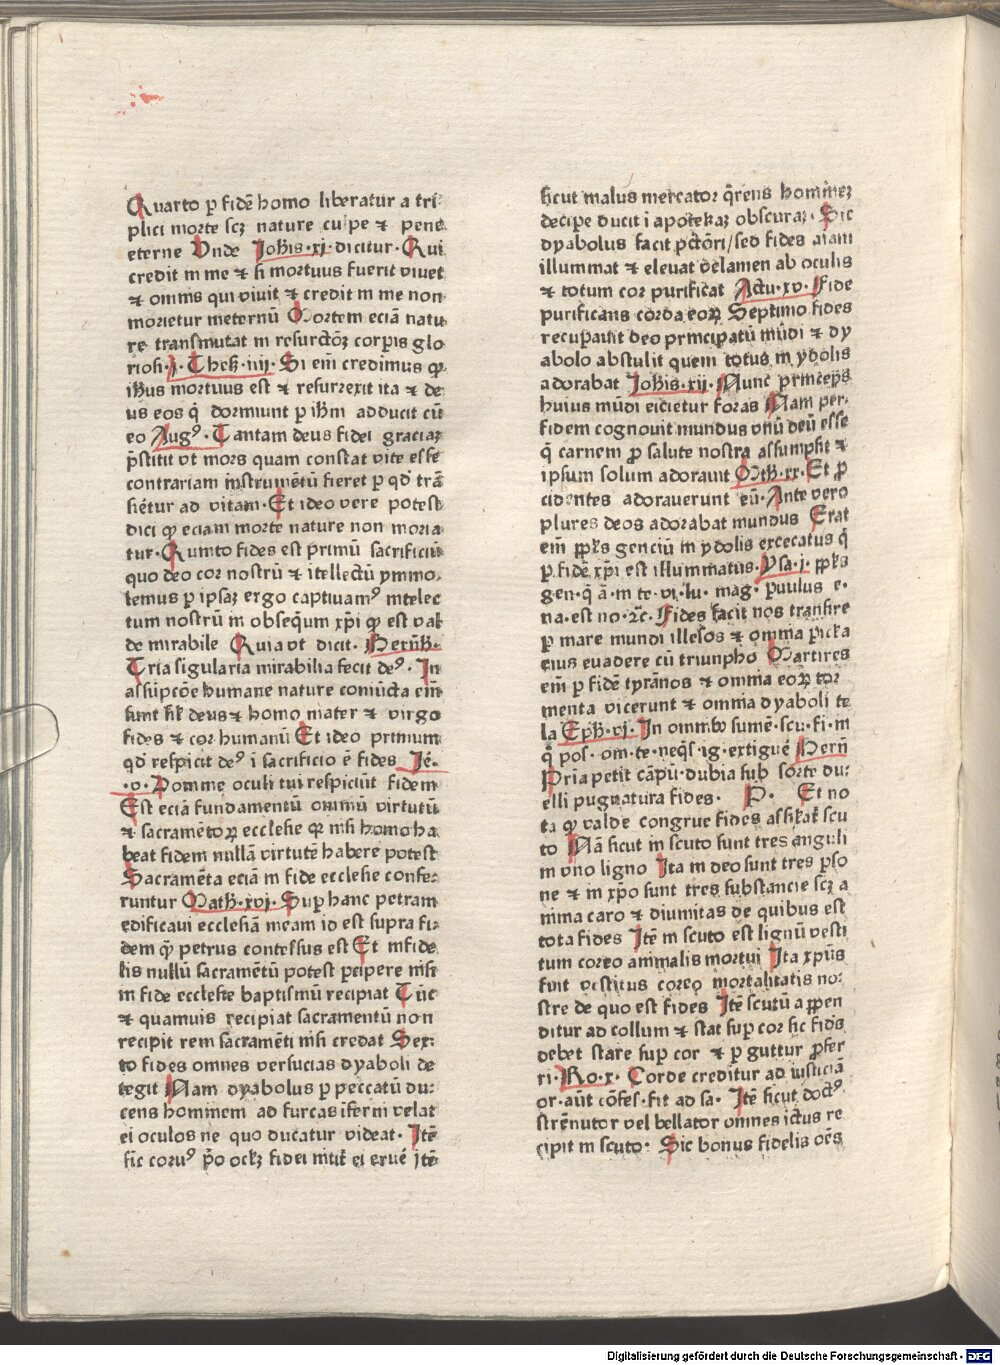 Quarto ꝑ fidē homo liberatur a tri⸗
plici morte scꝫ nature culpe ⁊ pene
eterne Unde Johis·xj·dicitur·Qui
credit in me ⁊ si mortuus fuerit viuet
⁊ omnis qui viuit ⁊ credit in me non
morietur ineternū Mortem eciā natu
re transmutat in resurctōꝫ corpis glo
riosi·j·Thess·iiij·Si em̄ credimus ꝙ
ihūs mortuus est ⁊ resurrexit ita ⁊ de
us eos q̄ dormiunt ꝑ ihm̄ adducit cū
eo Augꝰ·Tantam deus fidei graciaꝫ
p̄stitit vt mors quam constat vite esse
contrariam instrumētū fieret ꝑ qd̄ trā
siētur ad vitam·Et ideo vere potest
dici ꝙ eciam morte nature non moria
tur·Quinto fides est primū sacrificiū
quo deo cor nostrū ⁊ itellectū ymmo⸗
lemus ꝑ ipsaꝫ ergo captiuamꝰ intelec
tum nostrū in obseqūm xp̄i ꝙ est val
de mirabile Quia vt dicit·Bernh·
Tria sigularia mirabilia fecit deꝰ·In
assūpcōe humane nature coniūcta em̄
sunt sil̄ deus ⁊ homo mater ⁊ virgo
fides ⁊ cor humanū Et ideo primum
qd̄ respicit deꝰ i sacrificio ē fides Jē·
·v·Domine oculi tui respiciūt fidem
Est eciā fundamentū omniū virtutū
⁊ sacramētoꝝ ecclesie ꝙ nisi homo ha
beat fidem nullā virtutē habere potest
Sacramēta eciā in fide ecclesie confe⸗
runtur Math·xvj·Suꝑ hanc petram
edificaui ecclesiā meam id est supra fi⸗
dem q̄ petrus confessus est Et infide
lis nullū sacramētū potest ꝑcipere nisi
in fide ecclesie baptismū recipiat Tūc
⁊ quamuis recipiat sacramentū non
recipit rem sacramēti nisi credat Sex⸗
to fides omnes versucias dyaboli de
tegit Nam dyabolus ꝑ peccatū du⸗
cens hominem ad furcas iferni velat
ei oculos ne quo ducatur videat·Itē
sic coruꝰ p̄o ocl'ꝫ fidei nitit̄ ei eruē Itē
sicut malus mercator q̄rens hominēꝫ
decipe ducit i apotekaꝫ obscuraꝫ·Sic
dyabolus facit pctōri/sed fides aīam
illuminat ⁊ eleuat velamen ab oculis
⁊ totum cor purificat Actu·xv·Fide
purificans corda eoꝝ Septimo fides
recuꝑauit deo principatū mūdi ⁊ dy
abolo abstulit quem totus in ydolis
adorabat Johis·xij·Nunc princeps
huius mūdi eicietur foras Nam per⸗
fidem cognouit mundus vnū deū esse
q̄ carnem ꝓ salute nostra assumpsit ⁊
ipsum solum adorauit Mth·xx·Et ꝓ
cidentes adorauerunt eū·Ante vero
plures deos adorabat mundus Erat
em̄ ppl's genciū in ydolis excecatus q̄
ꝑ fidē xp̄i est illuminatus·Ysa·j·ppl's
gen·q̄ ā·in te·vi·lu·mag·Puulus e·
na·est no·⁊c·Fides facit nos transire
ꝑ mare mundi illesos ⁊ omnia ꝑicla
eius euadere cū triunpho Martires
em̄ ꝑ fidē tyrānos ⁊ omnia eoꝝ tor
menta vicerunt ⁊ omnia dyaboli te
la Eph·vj·In omnib sumē·scu·fi·in
q̄ pos·om·te·neqs̄·ig·extiguē Bern̄
Pria petit cāpū·dubia sub sorte du⸗
elli pugnatura fides· P· Et no
ta ꝙ valde congrue fides assilat̄ scu
to Nā sicut in scuto sunt tres anguli
in vno ligno Ita in deo sunt tres ꝑso
ne ⁊ in xp̄o sunt tres substancie scꝫ a
nima caro ⁊ diuinitas de quibus est
tota fides Itē in scuto est lignū vesti
tum coreo animalis mortui Ita xpūs
fuit vestitus coreo mortalitatis no⸗
stre de quo est fides Itē scutū appen
ditur ad collum ⁊ stat suꝑ cor sic fidēs
debet stare suꝑ cor ⁊ ꝑ guttur ꝓfer
ri·Ro·x·Corde creditur ad iusticiā
or·aūt cōfes·fit ad sa·Itē sicut doctꝰ
strēnutor vel bellator omnes ictus re
cipit in scuto·Sic bonus fidelis oēs
Digitalisierung gefördert durch die Deutsche Forschungsgemeinschaft - DFG